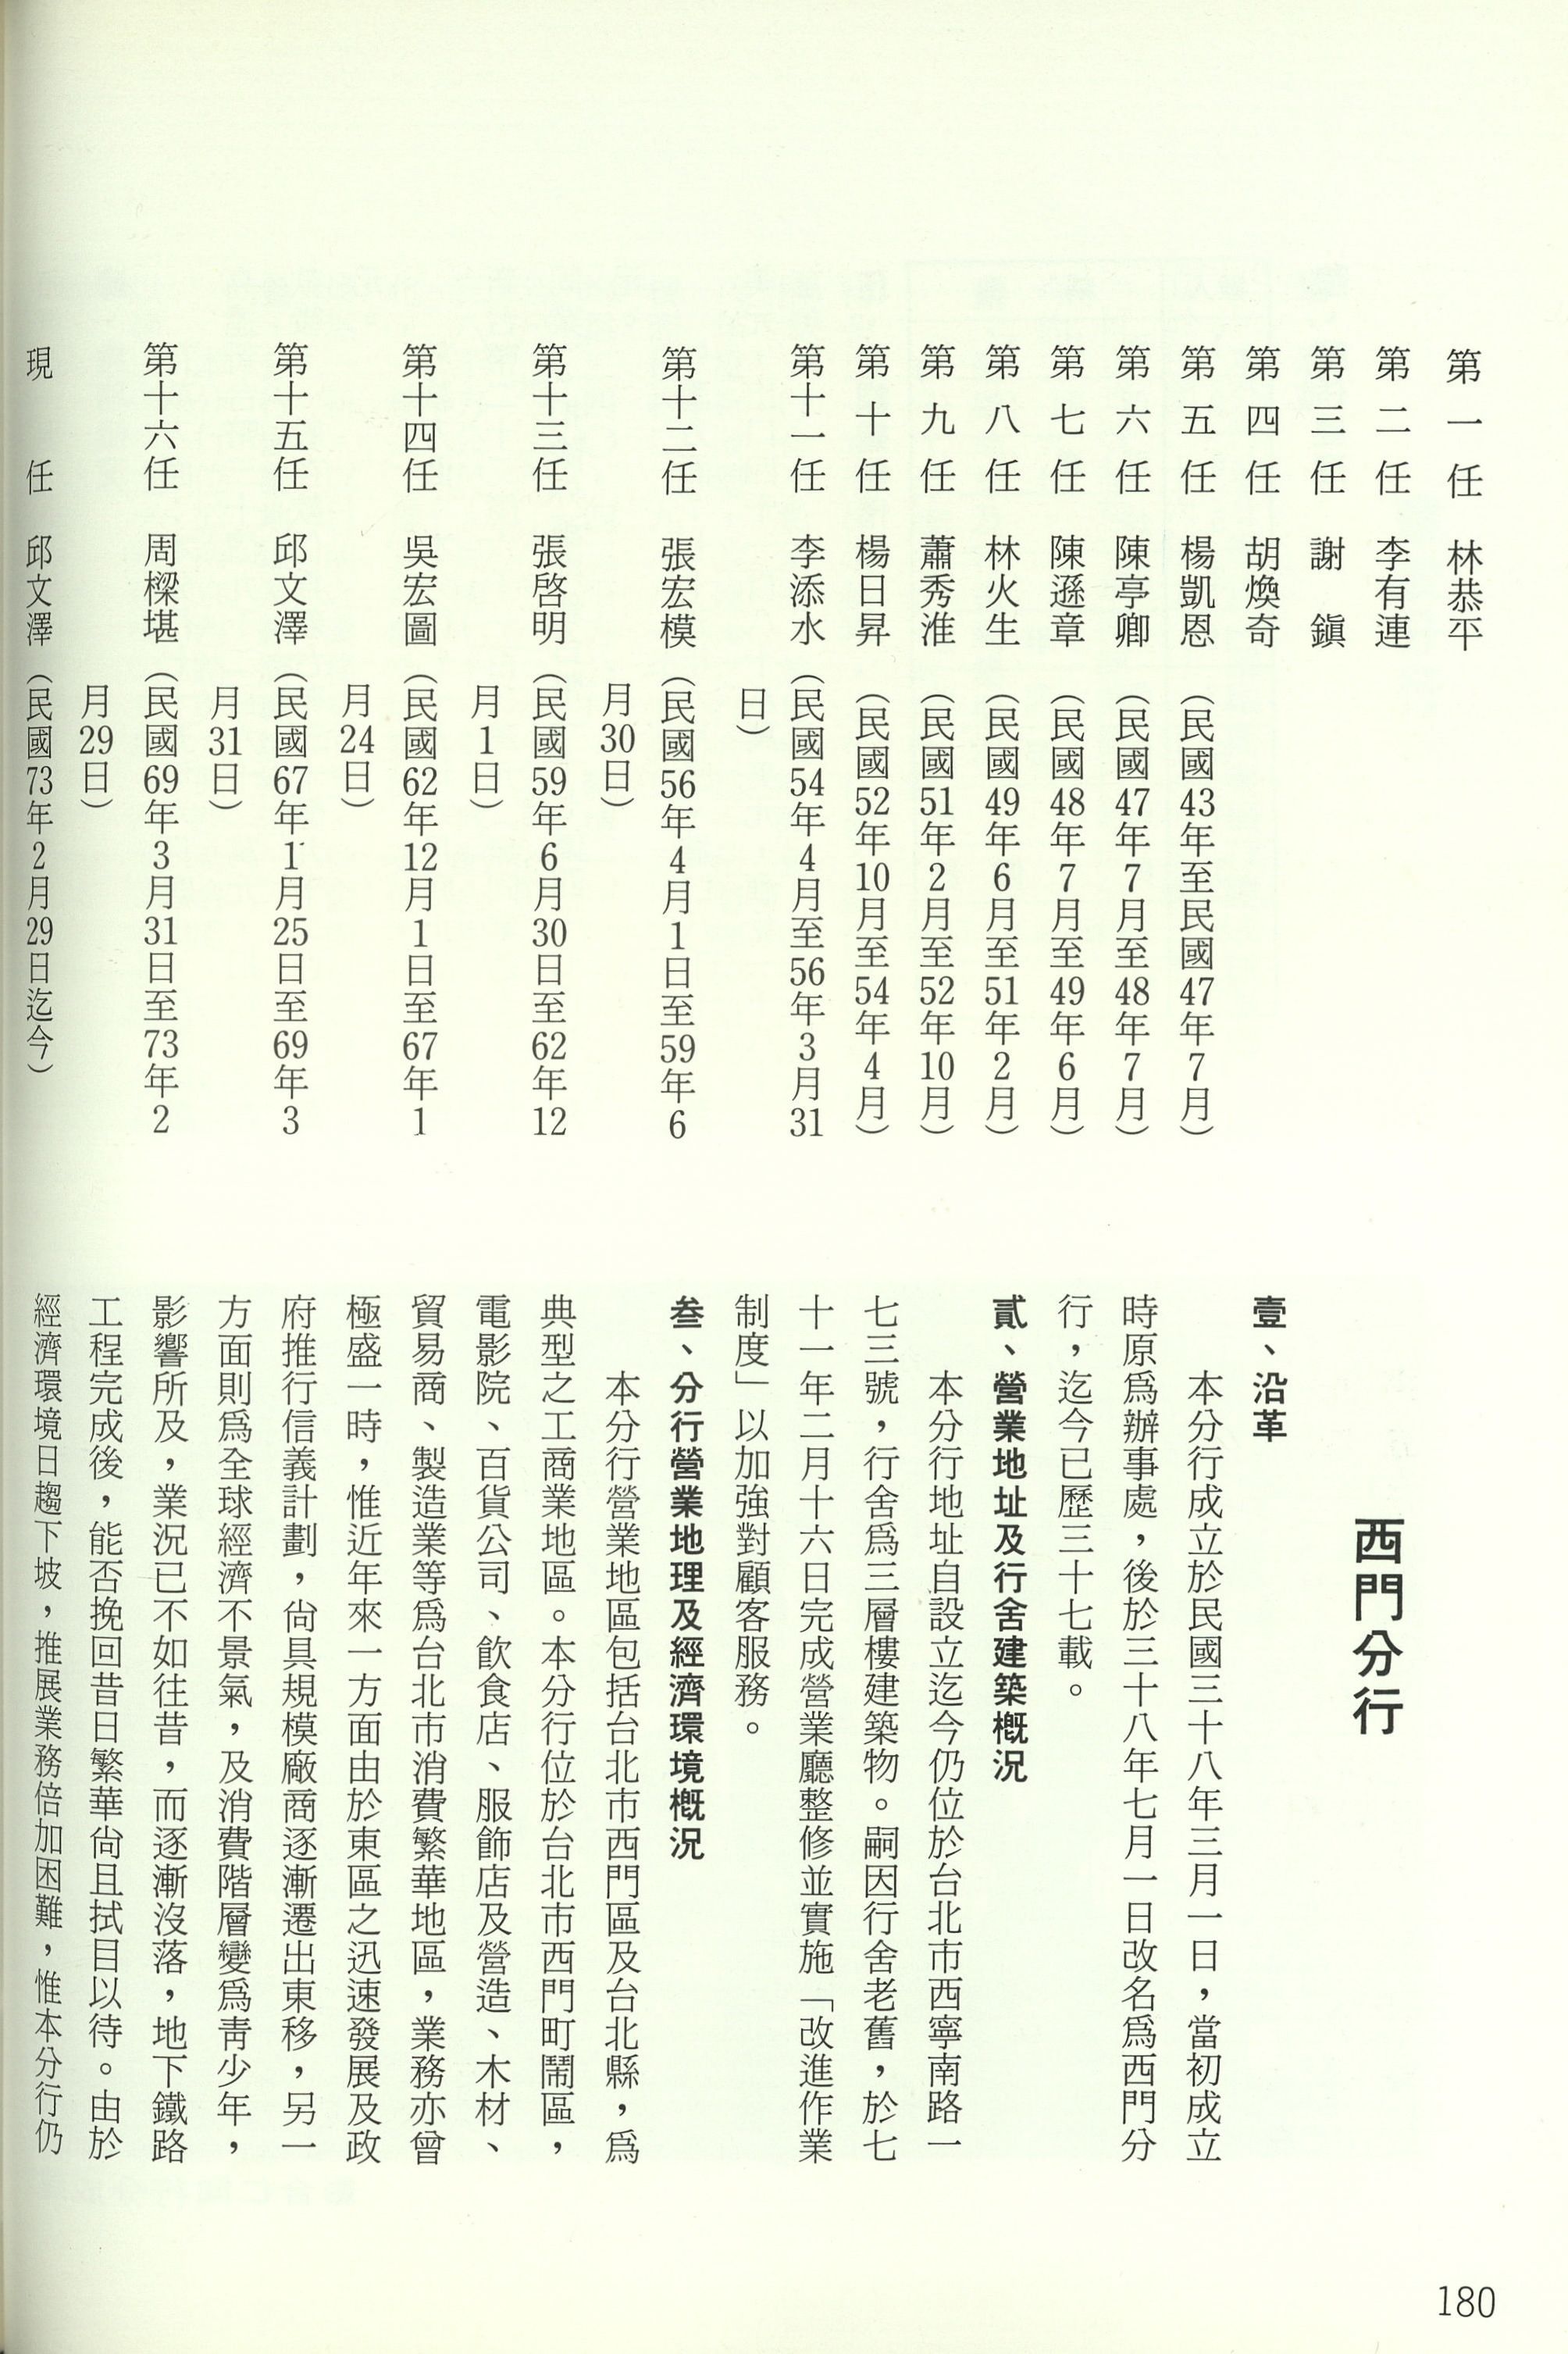 第一任　林恭平
第二任　李有連
第三任　謝　鎭
第四任　胡煥奇
第五任　楊凱恩（民國43年至民國47年7月）
第六任　陳亭卿（民國47年7月至48年7月）
第七任　陳遜章（民國48年7月至49年6月）
第八任　林火生（民國49年6月至51年2月）
第九任　蕭秀淮（民國51年2月至52年10月）
第十任　楊日昇（民國52年10月至54年4月）
第十一任　李添水（民國54年4月至56年3月31
日）
第十二任　張宏模（民國56年4月1日至59年6
月30日）
第十三任　張啓明（民國59年6月30日至62年12
月1日）
第十四任　吳宏圖（民國62年12月1日至67年1
月24日）
第十五任　邱文澤（民國67年1月25日至69年3
月31日）
第十六任　周樑堪（民國69年3月31日至73年2
月29日）
現　任　邱文澤（民國73年2月29日迄今）
西門分行
壹、沿革
本分行成立於民國三十八年三月一日，當初成立
時原爲辦事處，後於三十八年七月一日改名爲西門分
行，迄今已歷三十七載。
貳、營業地址及行舍建築槪況
本分行地址自設立迄今仍位於台北市西寧南路一
七三號，行舍爲三層樓建築物。嗣因行舍老舊，於七
十一年二月十六日完成營業廳整修並實施「改進作業
制度」以加強對顧客服務。
叁、分行營業地理及經濟環境槪況
本分行營業地區包括台北市西門區及台北縣，爲
典型之工商業地區。本分行位於台北市西門町鬧區，
電影院、百貨公司、飲食店、服飾店及營造、木材、
貿易商、製造業等爲台北市消費繁華地區，業務亦曾
極盛一時，惟近年來一方面由於東區之迅速發展及政
府推行信義計劃，尙具規模廠商逐漸遷出東移，另一
方面則爲全球經濟不景氣，及消費階層變爲靑少年，
影響所及，業況已不如往昔，而逐漸沒落，地下鐵路
工程完成後，能否挽回昔日繁華尙且拭目以待。由於
經濟環境日趨下坡，推展業務倍加困難，惟本分行仍
180